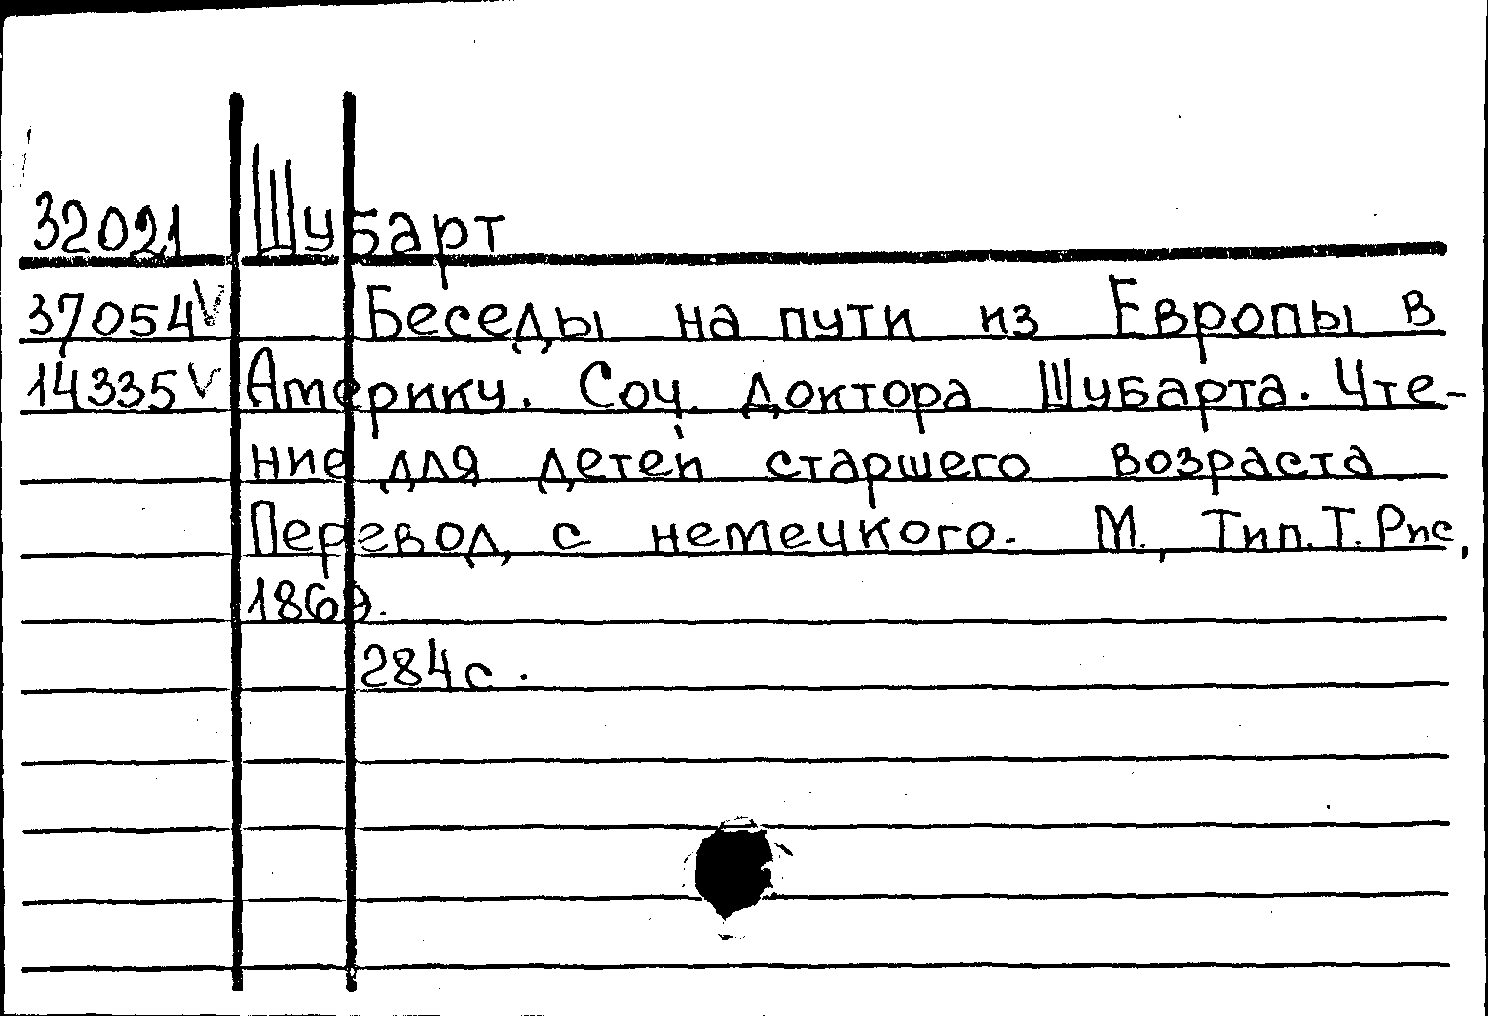 32021 Шубарт
37054 V Беседы на пути из Европы в
14335 V Америку. Соч. Доктора Шубарта. Чте-
ние для детей старшего возраста
Перевод с немецкого. М., Тип. Т. Рис,
1869.
284 с.